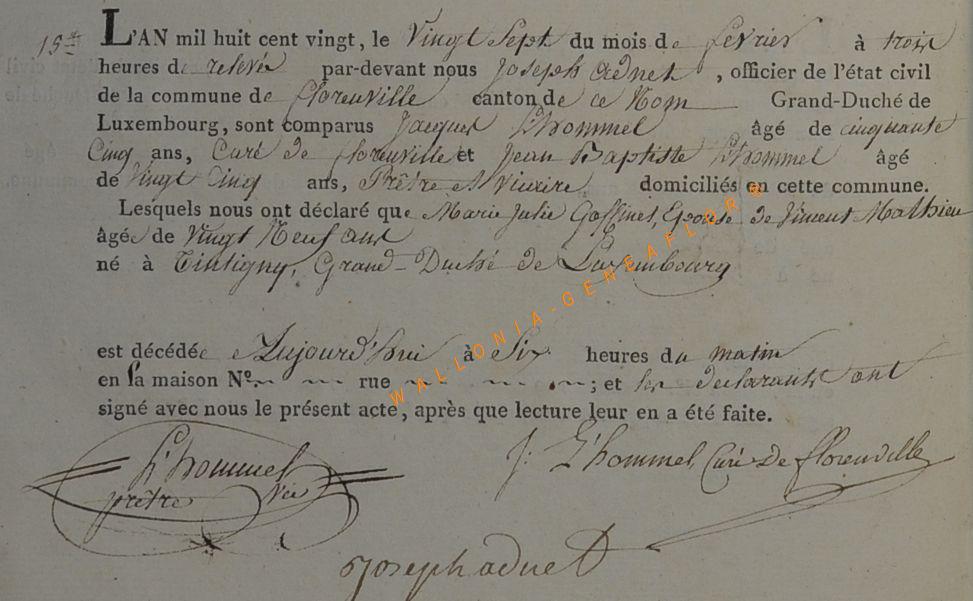 15e L'AN mil huit cent vingt, le Vingt Sept du mois de fevrier à trois
heures de relevée par-devant nous Joseph adnet, officier de l'état civil
de la commune de florenville canton de ce Nom Grand-Duché de
Luxembourg, sont comparus Jacques L'hommel âgé de cinquante
Cinq ans, Curé de florenville et Jean Baptiste L'hommel âgé
de Vingt Cinq ans, Prêtre et Vicaire domiciliés en cette commune.
Lesquels nous ont déclaré que Marie Julie Goffinet, Epouse de Vincent Mathieu
âgée de Vingt Neuf ans
né à Tintigny, Grand-Duché de Luxembourg
est décédée Aujourd'hui à Six heures du matin
en sa maison N° rue ; et les declarants ont
signé avec nous le présent acte, après que lecture leur en a été faite.
L'hommel J: L'hommel, Curé De florenville
prêtre Vic
Joseph adnet
WALLONIA-GENEAFLOR©